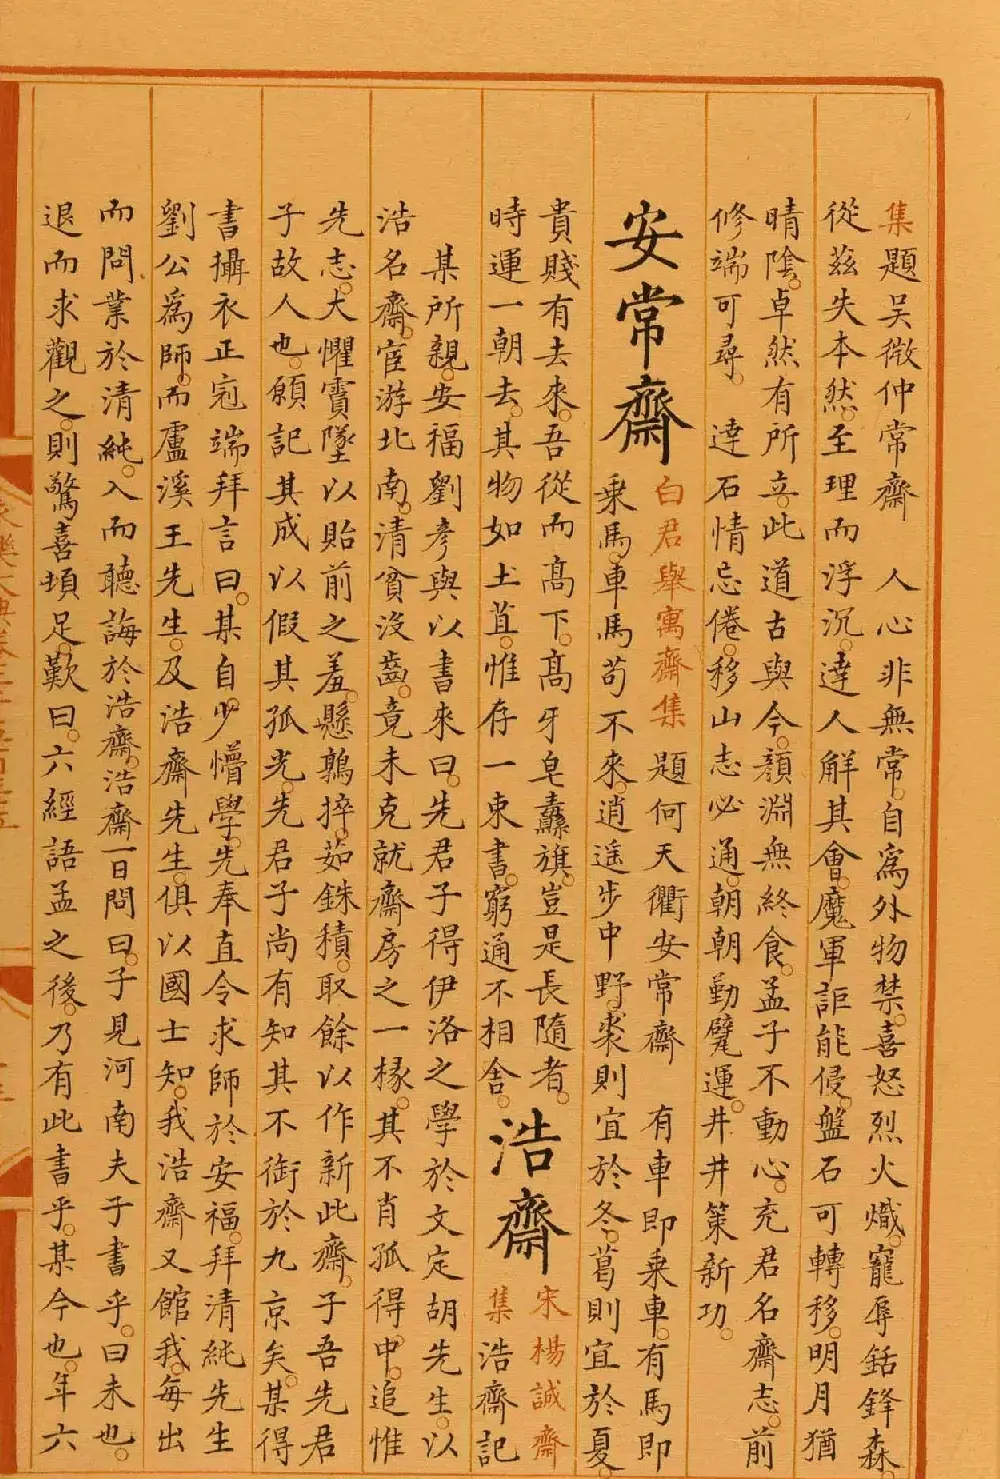 集題吳微仲常齋　人心非無常。自爲外物禁。喜怒烈火熾。寵辱銛鋒森。
從茲失本然。至理而浮沉。達人解其會。魔軍詎能侵。盤石可轉移。明月猶
晴陰。卓然有所立。此道古與今。顏淵無終食。孟子不動心。充君名齋志。前
修端可尋。　達石情忘倦。移山志必通。朝朝勤甓運。井井策新功。
安常齋
白君舉寓齋集　題何天衢安常齋　有車即乘車。有馬即
乘馬。車馬苟不來。逍遙步中野。裘則宜於冬。葛則宜於夏。
貴賤有去來。吾從而高下。高牙皂纛旗。豈是長隨者。
時運一朝去。其物如土苴。惟存一束書。窮通不相舍。
浩齋
宋楊誠齋
集浩齋記
某所親。安福劉彥與以書來曰。先君子得伊洛之學於文定胡先生。以
浩名齋。宦游北南。清貧沒齒。竟未克就齋房之一椽。其不肖孤得中。追惟
先志。大懼霣墜以貽前之羞。懸鶉捽。茹銖積。取餘以作新此齋。子吾先君
子故人也。願記其成以假其孤光。先君子尚有知其不銜於九京矣。某得
書攝衣正冠端拜言曰。某自少懵學。先奉直令求師於安福。拜清純先生
劉公爲師。而盧溪王先生。及浩齋先生。俱以國士知。我浩齋又館我。每出
而問業於清純。入而聽誨於浩齋。浩齋一日問曰。子見河南夫子書乎。曰未也。
退而求觀之。則驚喜頓足。歎曰。六經語孟之後。乃有此書乎。某今也。年六